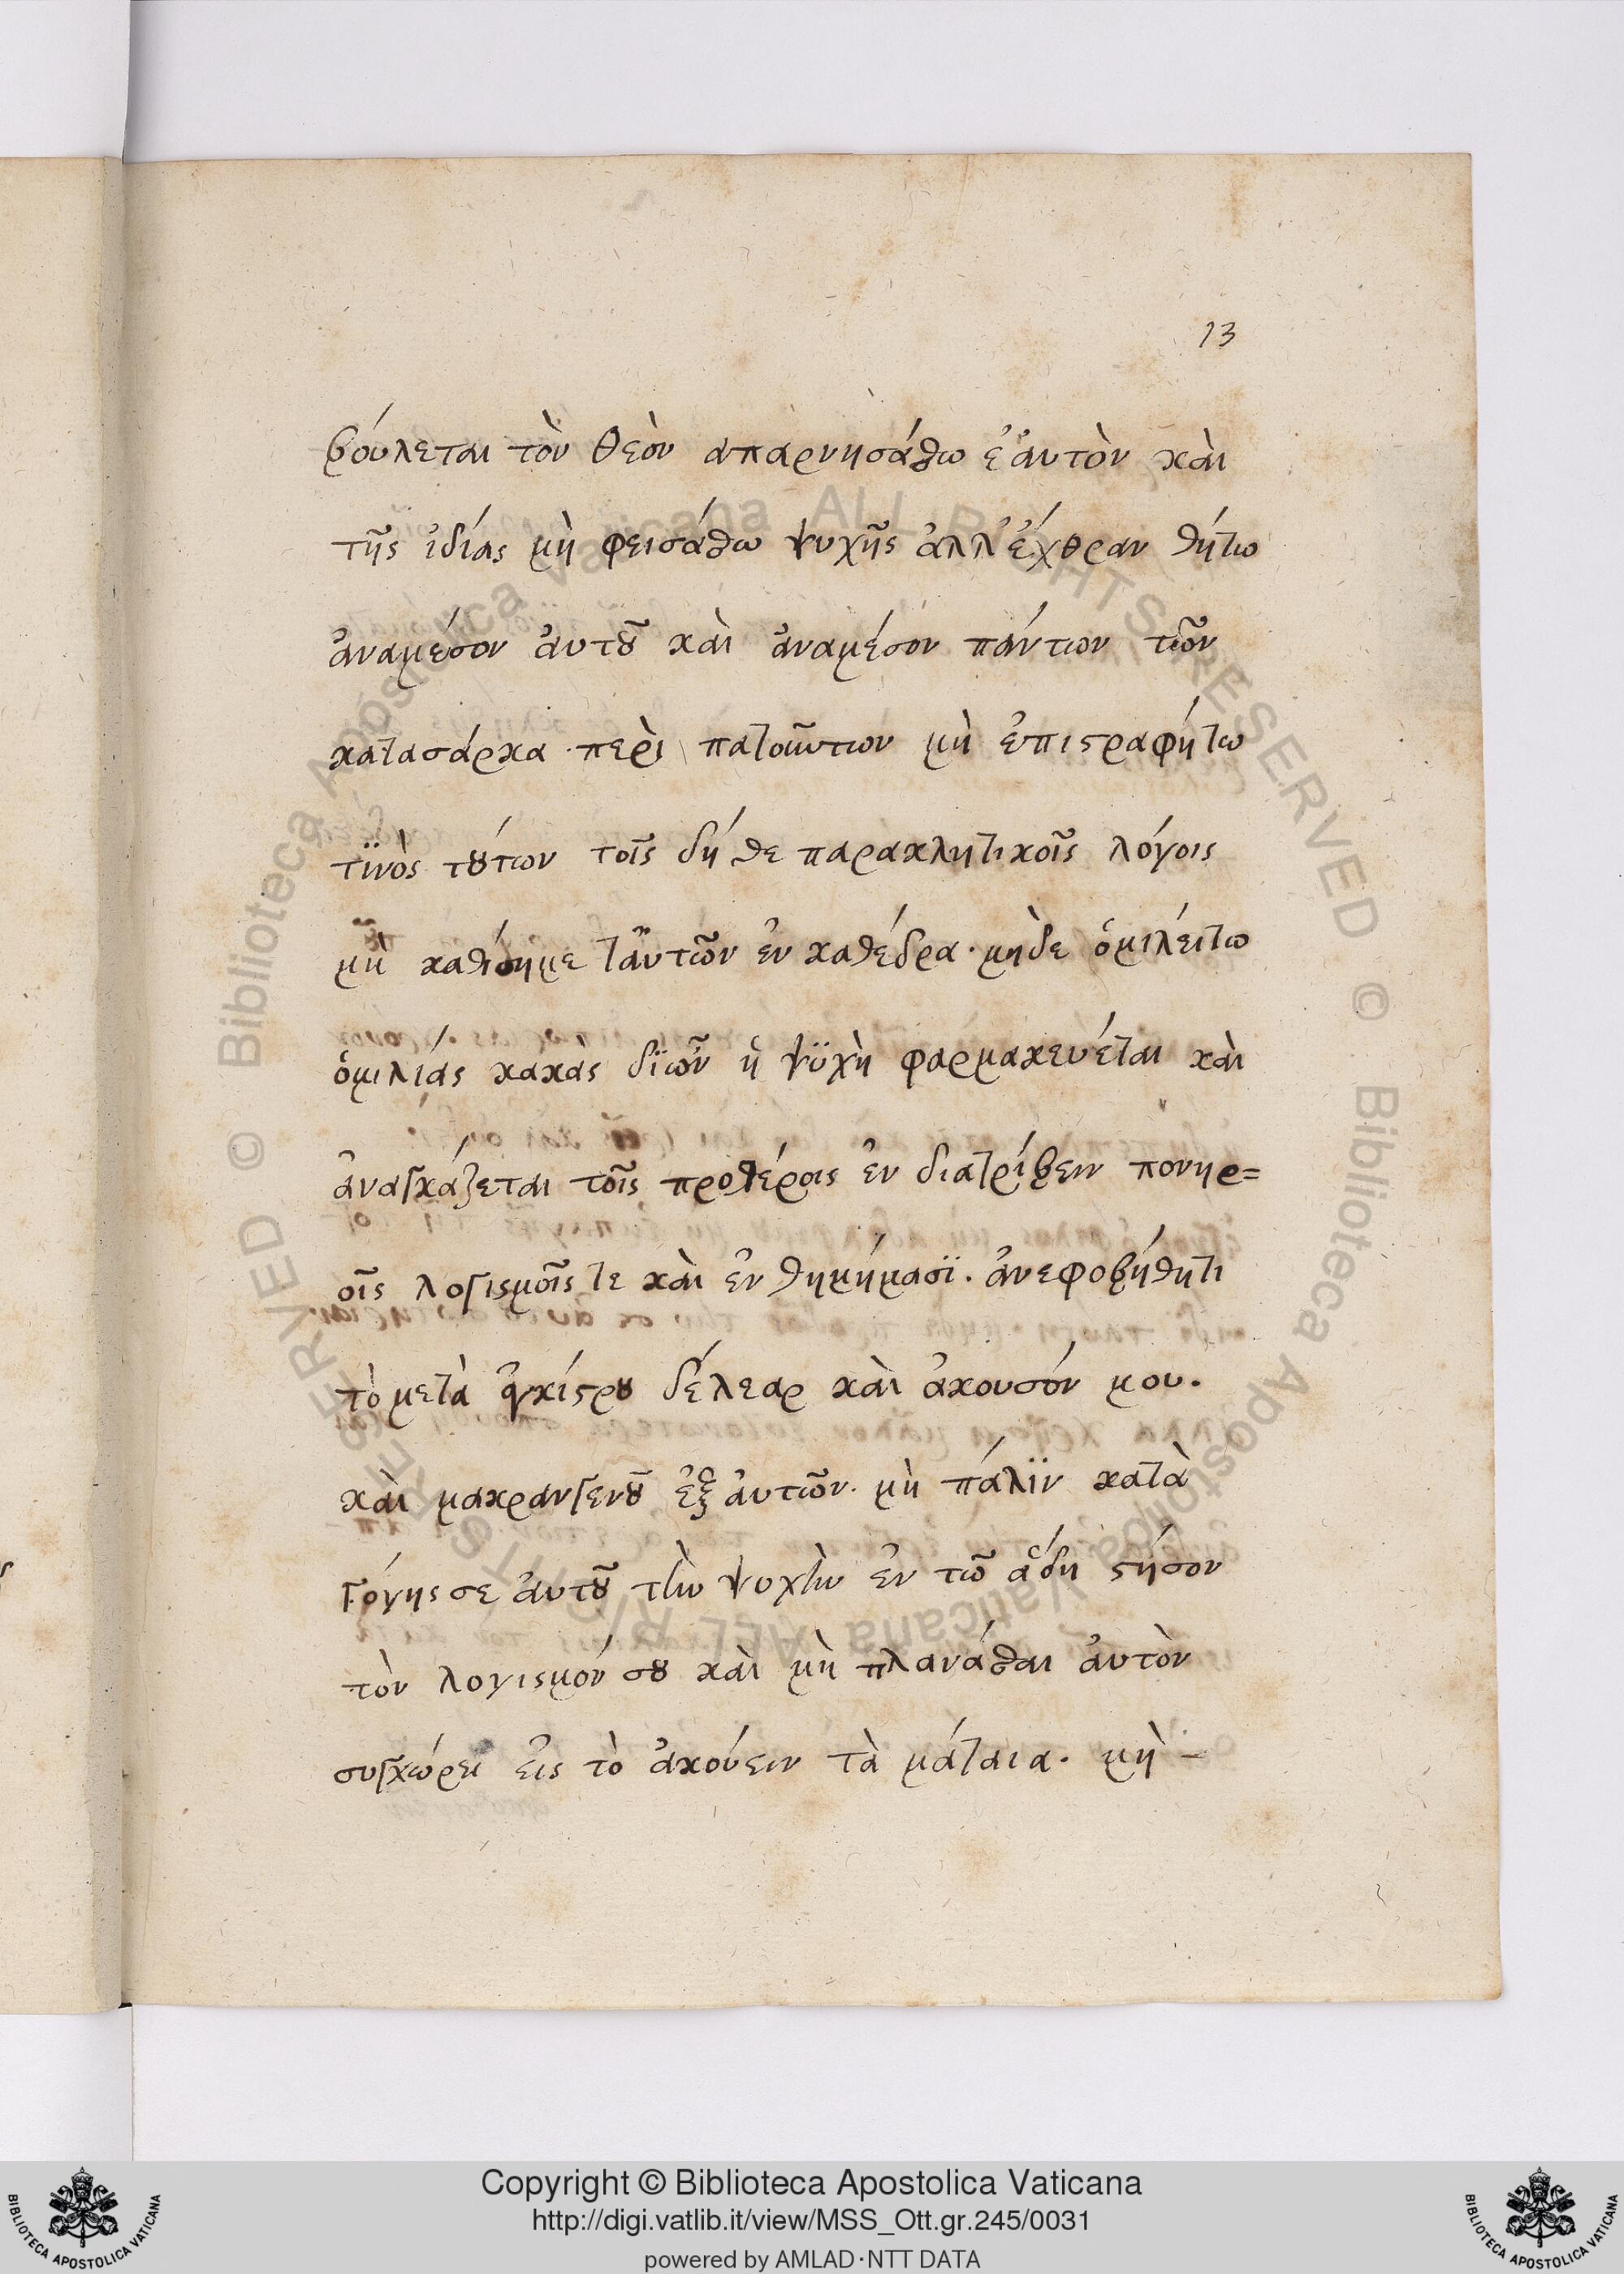 13
βούλεται τὸν θεὸν απαρνησάσθω ἑἀυτὸν κὰι
τῆς ἰδίας μὴ φεισάσθω ψυχῆς ἀλλἔχθραν θήτω
ἀναμέσον ἀυτοῦ κὰι ἀναμέσον πάντων τῶν
κατασάρκα · περὶ πατούντων μὴ ἐπιστραφήτω
τϊνὸς τούτων τοῖς δήθε παρακλητικοῖς λόγοις
μὴ καθίσημε τἀυτῶν ἐν καθέδρα · μηδὲ ὁμιλείτω
ὁμιλίάς κακὰς δϊὧν ἡ ψϋχὴ φαρμακευέται κὰι
ἀνασκάζεται τοῖς προτέροις ἐν διατρίβειν πονηρ=
οῖς λογισμοῖς τε κὰι ἐν θημήμασϊ. ἀνεφοβήθητι
τὸ μετὰ ἀγκίστρου δέλεαρ κὰι ἀκουσόν μου.
κὰι μακρανγενοῦ ἐξ ἀυτῶν · μὴ πάλϊν κατὰ
Γόγης σε ἀυτοῦ τὴν ψυχὴν ἐν τῶ ἅδη στήσον
τὸν λογισμόν σου κὰι μὴ πλανάσθαι ἀυτὸν
συγχώρει ἐις τὸ ἀκούειν τὰ μάταια. μὴ -
Copyright © Biblioteca Apostolica Vaticana
http://digi.vatlib.it/view/MSS_Ott.gr.245/0031
powered by AMLAD·NTT DATA
BIBLIOTECA APOSTOLICA VATICANA
BIBLIOTECA APOSTOLICA VATICANA
© Biblioteca Apostolica Vaticana ALL RIGHTS RESERVED
© Biblioteca Apostolica Vaticana ALL RIGHTS RESERVED